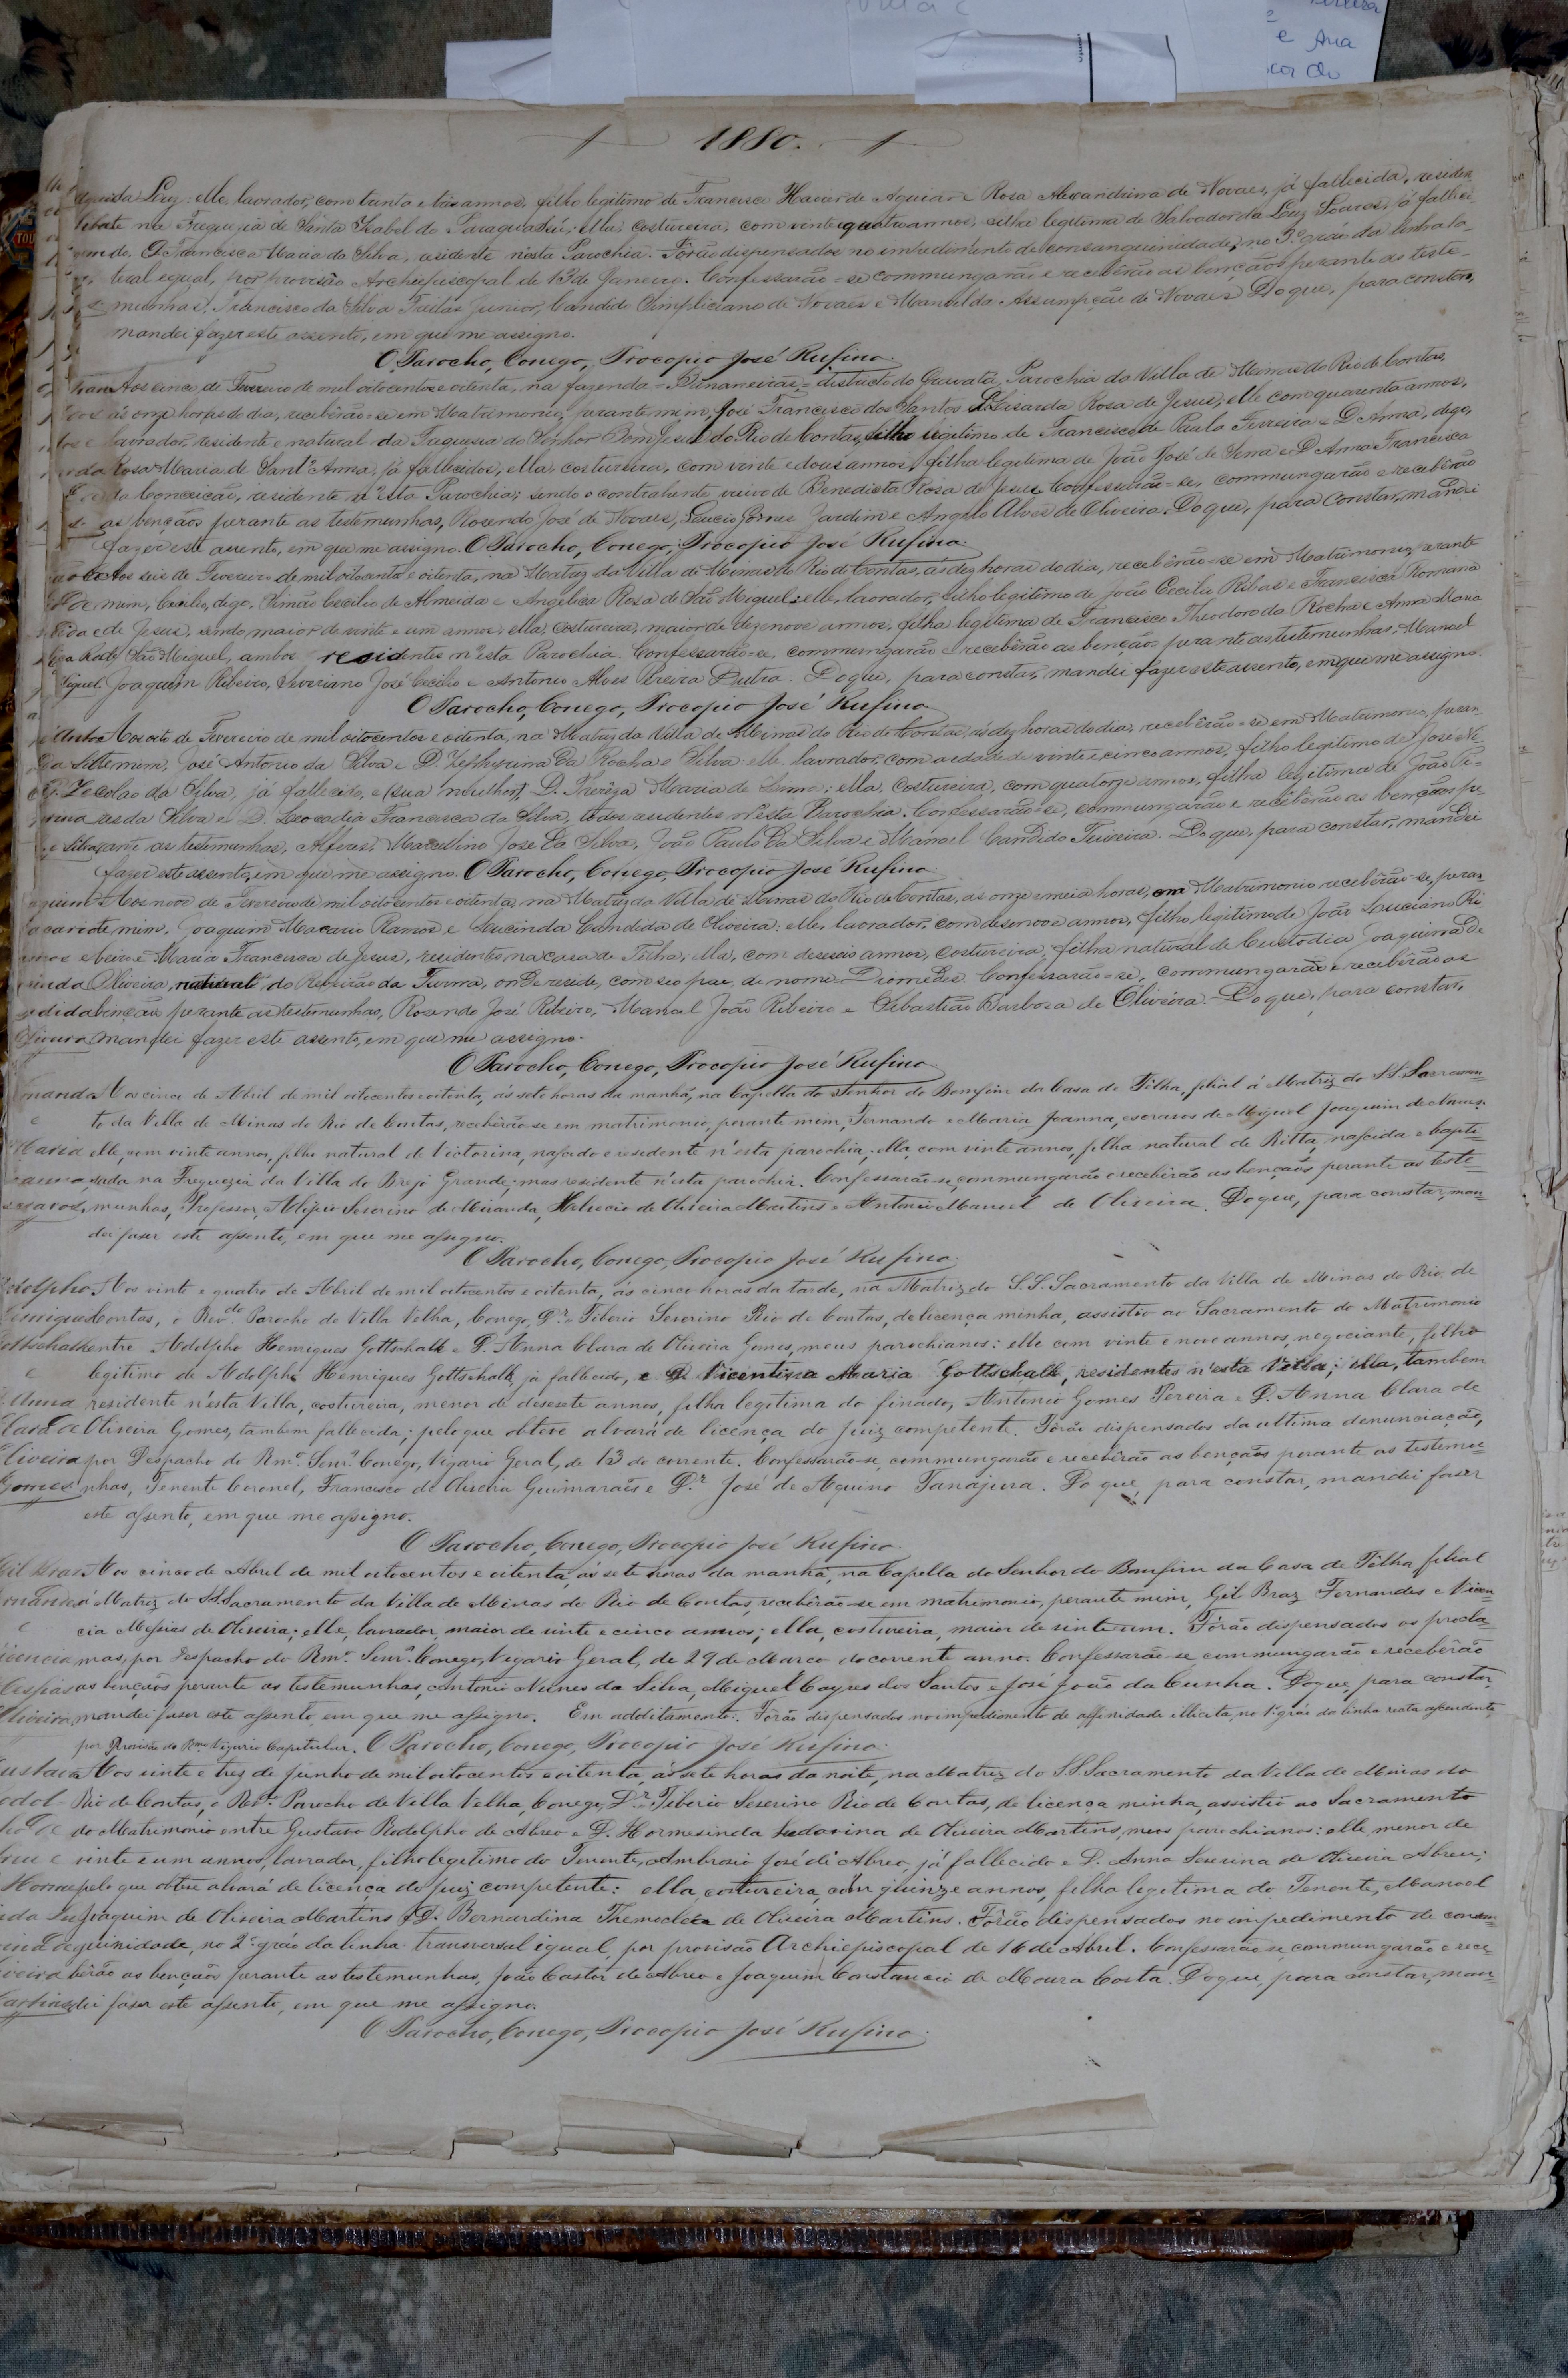 e Ana
1880.
da Luz: elle, lavrador, com trinta e tres annos, filho legitimo de Francisco Xavier de Aguiar e Rosa Alexandrina de Novaes, já fallecida, residen
na Freguezia de Santa Izabel do Paraguassú; ella, costureira, com vinte quatro annos, filha legitima de Salvador da Luz Soares, já falleci
do, e D. Francisca Maria da Silva, residente n'esta Parochia. Forão dispensados no impedimento de consanguinidade, no 3º gráo da linha la-
teral egual, por provisão Archiepiscopal de 13 de Janeiro. Confessarão-se, commungarão e receberão as bençãos perante as teste-
munhas, Francisco da Silva Freitas Junior, Candido Simpliciano de Novaes e Manoel da Assumpção de Novaes. Do que, para constar,
mandei fazer este assento, em que me assigno.
O Parocho, Conego, Procopio José Rufino.
Aos cinco de Fevereiro de mil oitocentos e oitenta, na fazenda = Bananeiras, = districto do Gravatá, Parochia da Villa de Minas do Rio de Contas,
ás onze horas do dia, receberão-se em Matrimonio, perante mim, José Francisco dos Santos e Lisarda Rosa de Jesus; elle com quarenta annos,
lavrador, residente e natural da Freguesia do Senhor Bom Jesus do Rio de Contas, filho legitimo de Francisco de Paula Ferreira e D. Anna, dego,
Rosa Maria de Sant'Anna, já fallecidos; ella, costureira, com vinte e dous annos, filha legitima de João José de Sena e D. Anna Francisca
da Conceição, residente n'esta Parochia; sendo o contrahente viuvo de Benedicta Rosa de Jesus. Confessarão-se, commungarão e receberão
as bençãos perante as testemunhas, Rosendo José de Novaes, Laucio Gomes Jardim e Angelo Alves de Oliveira. Do que, para constar, mandei
fazer este assento, em que me assigno. O Parocho, Conego, Procopio José Rufino.
Aos seis de Fevereiro de mil oitocentos e oitenta, na Matriz da Villa de Minas do Rio de Contas, ás dez horas do dia, receberão-se em Matrimonio, perante
mim, Cecilio, dego, Simão Cecilio de Almeida e Angelica Rosa de São Miguel: elle, lavrador, filho legitimo de João Cecilio Ribas e Francisca Romana
de Jesus, sendo maior de vinte e um annos; ella, costureira, maior de dezenove annos, filha legitima de Francisco Theodoro da Rocha e Anna Maria
de São Miguel, ambos residentes n'esta Parochia. Confessarão-se, commungarão e receberão as bençãos perante as testemunhas, Manoel
Joaquim Ribeiro, Severiano José Cecilio e Antonio Alves Pereira Dutra. Do que, para constar, mandei fazer este assento, em que me assigno.
O Parocho, Conego, Procopio José Rufino.
Aos oito de Fevereiro de mil oitocentos e oitenta, na Matriz da Villa de Minas do Rio de Contas, ás dez horas do dia, receberão-se em Matrimonio, peran-
te mim, José Antonio da Silva e D. Zephyrina da Rocha e Silva: elle, lavrador, com a edade de vinte e cinco annos, filho legitimo de José Ni-
colao da Silva, já fallecido, e (sua mulher) D. Thereza Maria de Lemos; ella, costureira, com quatorze annos, filha legitima de João Pi-
res da Silva e D. Leocadia Francisca da Silva, todos residentes n'esta Parochia. Confessarão-se, commungarão e receberão as bençãos pe-
rante as testemunhas, Alferes Marcellino José da Silva, João Paulo da Silva e Manoel Candido Teixeira. Do que, para constar, mandei
fazer este assento, em que me assigno. O Parocho, Conego, Procopio José Rufino.
Aos nove de Fevereiro de mil oitocentos e oitenta, na Matriz da Villa de Minas do Rio de Contas, ás onze e meia horas, em Matrimonio receberão-se, peran
te mim, Joaquim Macario Ramos e Lucinda Candida de Oliveira: elle, lavrador, com desenove annos, filho legitimo de João Luciano Ri
beiro e Maria Francisca de Jesus, residentes na casa de Telha; ella, com deseseis annos, costureira, filha natural de Custodia Joaquina de
Oliveira, natural do Ribeirão da Furna, onde reside, com seo pae de nome = Diomedes. Confessarão-se, commungarão e receberão as
bençãos perante as testemunhas, Rosendo José Ribeiro, Manoel João Ribeiro e Sebastião Barbosa de Oliveira. Do que, para constar,
mandei fazer este assento, em que me assigno.
O Parocho, Conego, Procopio José Rufino.
Aos cinco de Abril de mil oitocentos e oitenta, ás sete horas da manhã, na Capella do Senhor do Bomfim da Casa de Telha, filial á Matriz do SS. Sacramen-
to da Villa de Minas do Rio de Contas, receberão-se em matrimonio, perante mim, Fernando e Maria Joanna, escravos de Miguel Joaquim de Novaes.
elle, com vinte annos, filho natural de Victorina, nascido e residente n'esta parochia; ella, com vinte annos, filha natural de Ritta, nascida e bapti-
sada na Freguezia da Villa do Brejo Grande; mas residente n'esta parochia. Confessarão-se, commungarão e receberão as bençãos perante as teste-
munhas, Professor, Alipio Severino de Miranda, Helvecio de Oliveira Martins e Antonio Manoel de Oliveira. Do que, para constar, man-
dei faser este assento, em que me assigno.
O Parocho, Conego, Procopio José Rufino.
Aos vinte e quatro de Abril de mil oitocentos e oitenta, ás cinco horas da tarde, na Matriz do S.S. Sacramento da Villa de Minas do Rio de
Contas, o Revdo. Parocho de Villa Velha, Conego, Dr. Tiberio Severino Rio de Contas, de licença minha, assistio ao Sacramento do Matrimonio
entre Adolpho Henriques Gottschalk e D. Anna Clara de Oliveira Gomes, meus parochianos: elle com vinte e nove annos, negociante, filho
legitimo de Adolpho Henriques Gottschalk, já fallecido, e D. Vicentina Maria Gottschalk, residentes n'esta Villa; ella, tambem
residente n'esta Villa, costureira, menor de desesete annos, filha legitima do finado, Antonio Gomes Pereira e D. Anna Clara de
Oliveira Gomes, tambem fallecida; pelo que obteve alvará de licença do Juiz competente. Forão dispensados da ultima denunciação,
por Despacho do Rmo. Senr. Conego, Vigario Geral, de 13 do corrente. Confessarão-se, commungarão e receberão as bençãos perante as testemu-
nhas, Tenente Coronel, Francisco de Oliveira Guimarães e Dr. José de Aquino Tanajura. Do que, para constar, mandei faser
este assento, em que me assigno.
O Parocho, Conego, Procopio José Rufino.
Aos cinco de Abril de mil oitocentos e oitenta, ás sete horas da manhã, na Capella do Senhor do Bomfim da Casa de Telha filial
á Matriz do SS. Sacramento da Villa de Minas do Rio de Contas, receberão-se em matrimonio, perante mim, Gil Braz Fernandes e Vicen
cia Messias de Oliveira; elle, lavrador, maior de vinte e cinco annos; ella, costureira, maior de vinte e um. Forão dispensados os procla-
mas, por Despacho do Rmo. Senr. Conego, Vigario Geral, de 29 de Março do corrente anno. Confessarão-se, commungarão e receberão
as bençãos perante as testemunhas, Antonio Nunes da Silva, Miguel Cayres dos Santos e José João da Cunha. Do que, para constar,
mandei faser este assento, em que me assigno. Em additamento. Forão dispensados no impedimento de affinidade illicita, no 1º gráo da linha recta ascendente,
por Provisão do Rmo. Vigario Capitular. O Parocho, Conego, Procopio José Rufino.
Aos vinte e tres de Junho de mil oitocentos e oitenta, ás sete horas da noite, na Matriz do S.S. Sacramento da Villa de Minas do
Rio de Contas, o Revdo. Parocho de Villa Velha, Conego, Dr. Tiberio Severino Rio de Contas, de licença minha, assistio ao Sacramento
do Matrimonio entre Gustavo Rodolpho de Abreo e D. Hormesinda Ludovina de Oliveira Martins, meus parochianos: elle, menor de
vinte e um annos, lavrador, filho legitimo do Tenente, Ambrosio José de Abreo, já fallecido e D. Anna Severina de Oliveira Abreu;
pelo que obteve alvará de licença do Juiz competente: ella, costureira, com quinze annos, filha legitima do Tenente, Manoel
Joaquim de Oliveira Martins e D. Bernardina Themoclea de Oliveira Martins. Forão dispensados no impedimento de consan-
guinidade, no 2º gráo da linha transversal igual, por provisão Archiepiscopal de 16 de Abril. Confessarão-se, commungarão e rece-
berão as bençãos perante as testemunhas, João Castor de Abreo e Joaquim Constancio de Moura Costa. Do que, para constar, man-
dei faser este assento, em que me assigno.
O Parocho, Conego, Procopio José Rufino.